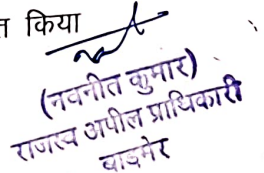 त किया
(नवनीत कुमार)
राजस्व अपील प्राधिकारी
बाड़मेर